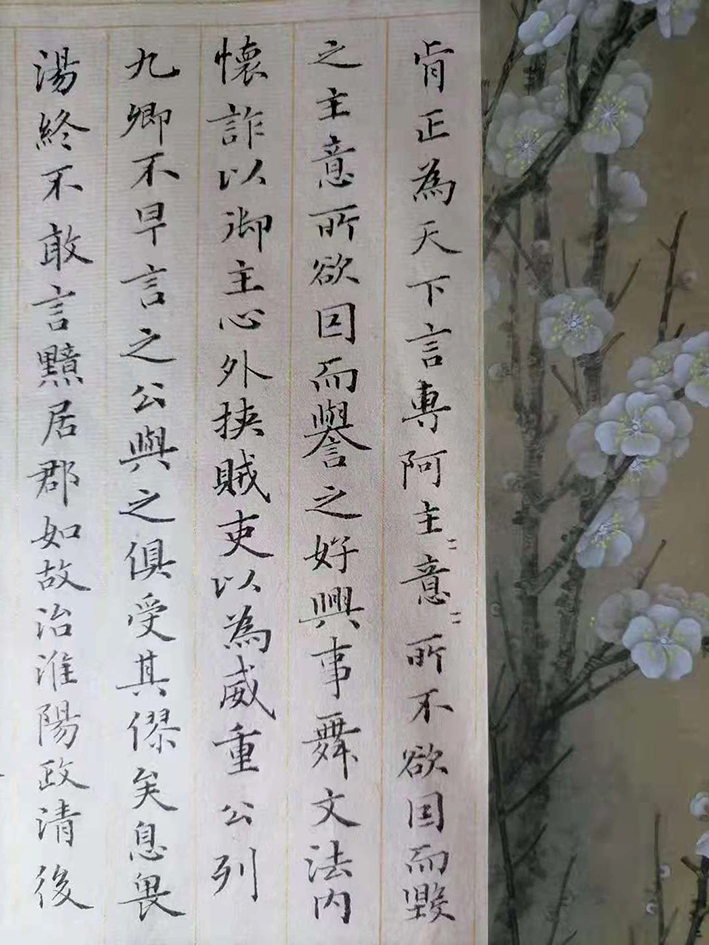 肯正為天下言專阿主〻意〻所不欲因而毀
之主意所欲因而譽之好興事舞文法内
懷詐以御主心外挾賊吏以為威重公列
九卿不早言之公與之俱受其僇矣息畏
湯終不敢言黯居郡如故治淮陽政清後